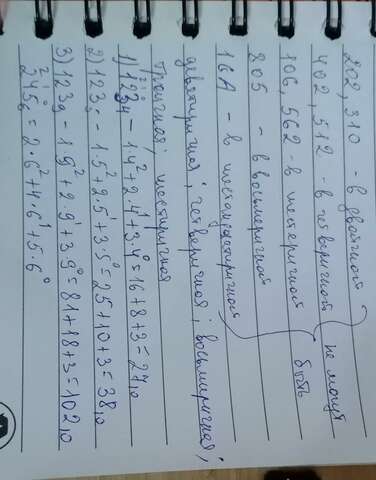 202, 310 - в двоичной
402, 512 - в четверичной } не могут
106, 562 - в шестеричной быть
805 - в восьмеричной
16A - в шестнадцатиричной
девятиричная; четверичная; восьмиричная;
троичная; шестиричная
1) 123₄ - 1·4² + 2·4¹ + 3·4⁰ = 16 + 8 + 3 = 27₁₀
2) 123₅ - 1·5² + 2·5¹ + 3·5⁰ = 25 + 10 + 3 = 38₁₀
3) 123₉ - 1·9² + 2·9¹ + 3·9⁰ = 81 + 18 + 3 = 102₁₀
245₆ = 2·6² + 4·6¹ + 5·6⁰